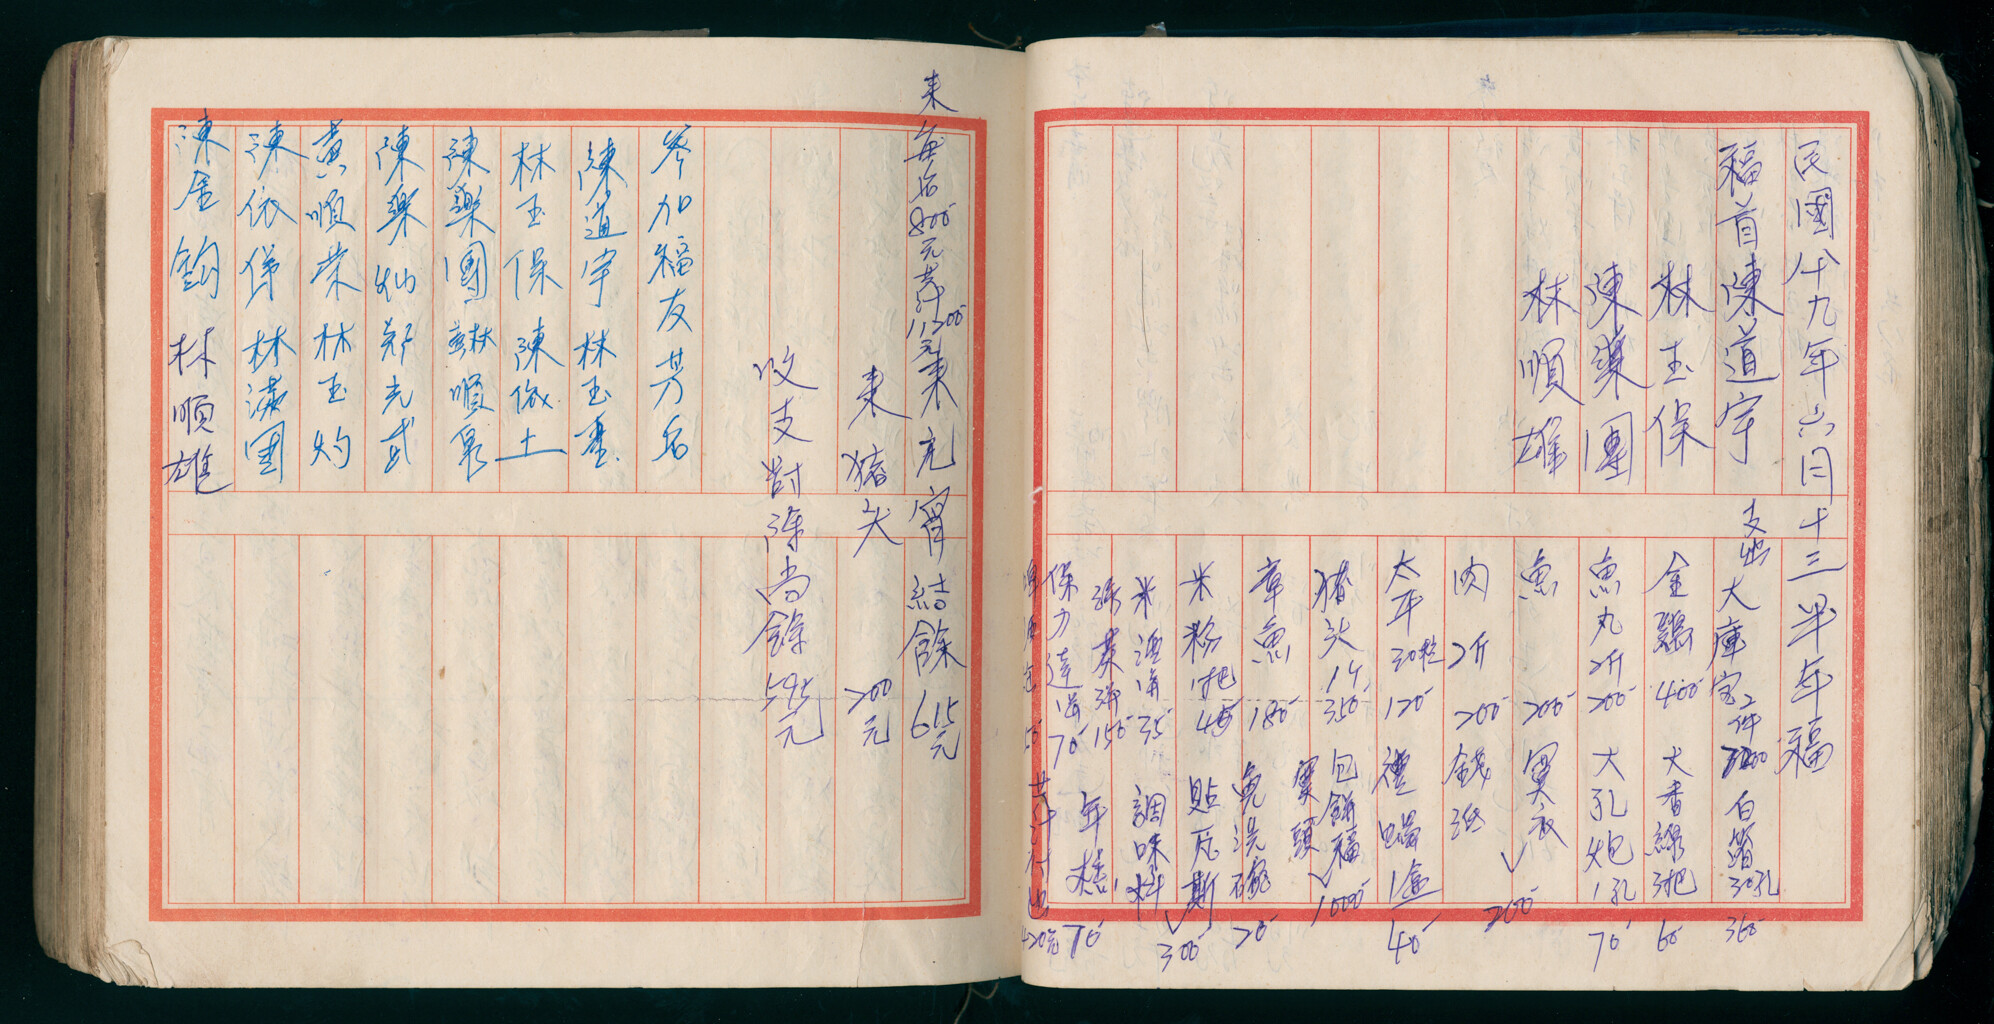 民國八十九年六月十三半年福
福首陳道宇
林玉保
陳藥團
林順雄
支出 大庫宝2件 白箔30孔 360
金雞 400 大香線3把 60
魚丸2斤 200 大孔炮1孔 70
魚 200
肉2斤 200 錢紙 200
太平30粒 120 禮蠟1盒 40
猪头1个 350 包餅福 1000
章魚 180 洗碗 20
米粉1把 45 貼瓦斯 300
米酒 35 調味料
150
保力達 70 年糕 70
共計
来每名800元共計11200元
来元宵結餘615元
来猪头 200元
收支对除尚餘595元
參加福友芳名
陳道宇 林玉
林玉保 陳依土
陳藥團 林順泉
陳藥灿 鄭光武
黃順荣 林玉灼
陳依俤 林满團
陳金鈎 林順雄